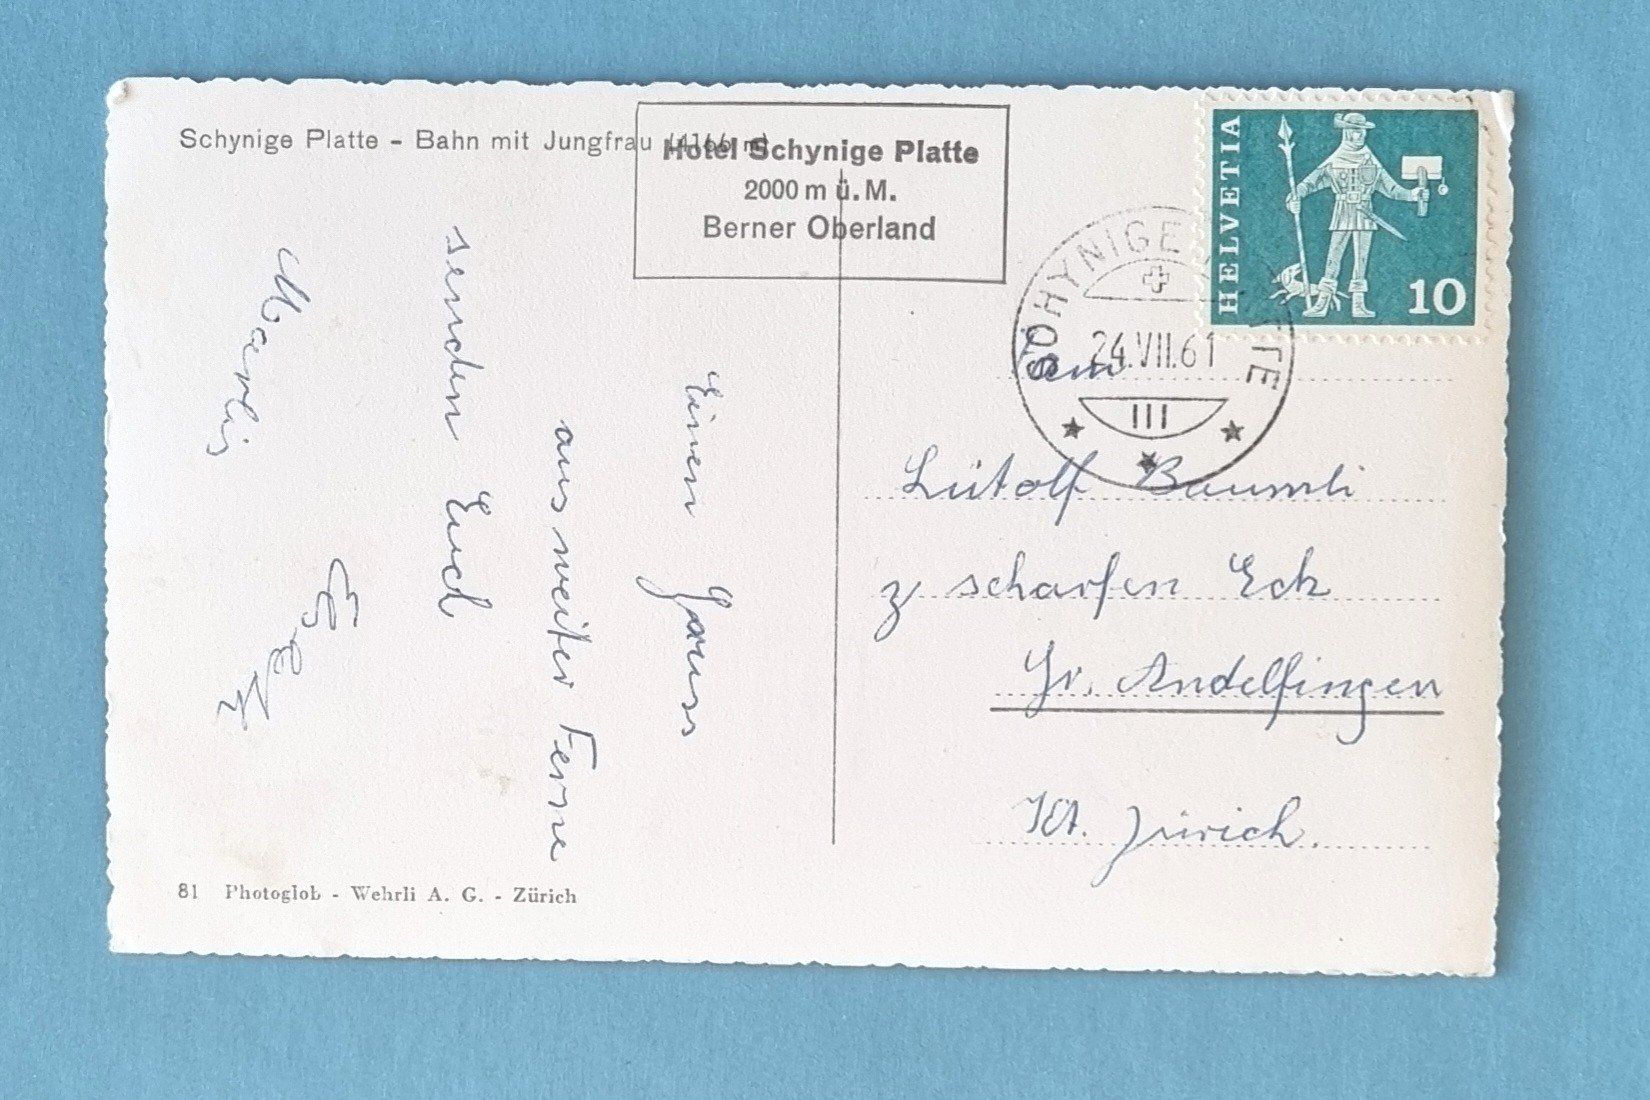 Schynige Platte - Bahn mit Jungfrau (4166 m)
Hotel Schynige Platte
2000 m ü. M.
Berner Oberland
HELVETIA
10
SCHYNIGE PLATTE
24.VII.61
Fam
Lütolf Bäumli
z scharfen Eck
Gr. Andelfingen
Kt. Zürich.
Einen Gruss
aus weiter Ferne
senden Euch
81 Photoglob - Wehrli A. G. - Zürich